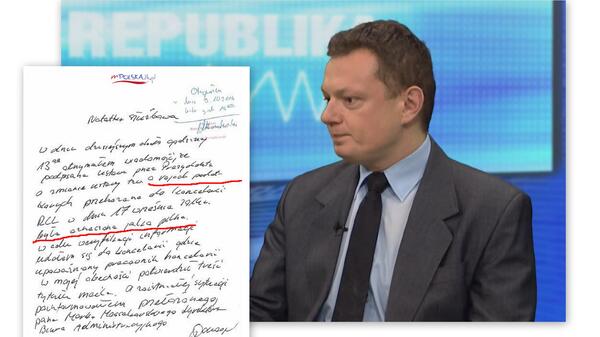 REPUBLIKA
w dniu
Notatka służbowa
w dniu dzisiejszym około godziny
13:00 otrzymałem wiadomość, że
podpisana ustawa przez Prezydenta
o zmianie ustawy tzw o rajach podat-
kowych przekazana do kancelarii
RCL w dniu 17 września
była oznaczona jako pilna.
w celu weryfikacji informacji
udałem się do kancelarii gdzie
upoważniony pracownik kancelarii
w mojej obecności potwierdził treść
tytułu maila. O zaistniałej sytuacji
poinformowałem przełożonego
pana Marka Dyrektora
Biura Administracyjnego